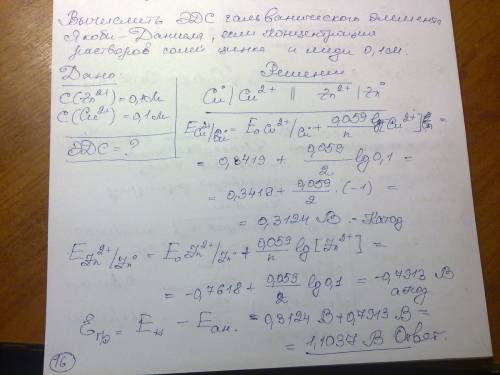 Вычислить ЭДС гальванического элемента
Якоби-Даниеля, если концентрация
растворов солей цинка и меди 0,1 м.
Дано
C(Zn²⁺) = 0,1 м
C(Cu²⁺) = 0,1 м
ЭДС = ?
Решение
Cu⁰ | Cu²⁺ || Zn²⁺ | Zn⁰
E Cu²⁺/Cu⁰ = E₀ Cu²⁺/Cu⁰ + 0,059/n lg[Cu²⁺] =
= 0,3419 + 0,059/2 lg 0,1 =
= 0,3419 + 0,059/2 · (-1) =
= 0,3124 В. - Катод
E Zn²⁺/Zn⁰ = E₀ Zn²⁺/Zn⁰ + 0,059/n lg[Zn²⁺] =
= -0,7618 + 0,059/2 lg 0,1 = -0,7913 В
анод
Eгр = Eк - Eан. = 0,3124 В + 0,7913 В =
= 1,1037 В Ответ.
16